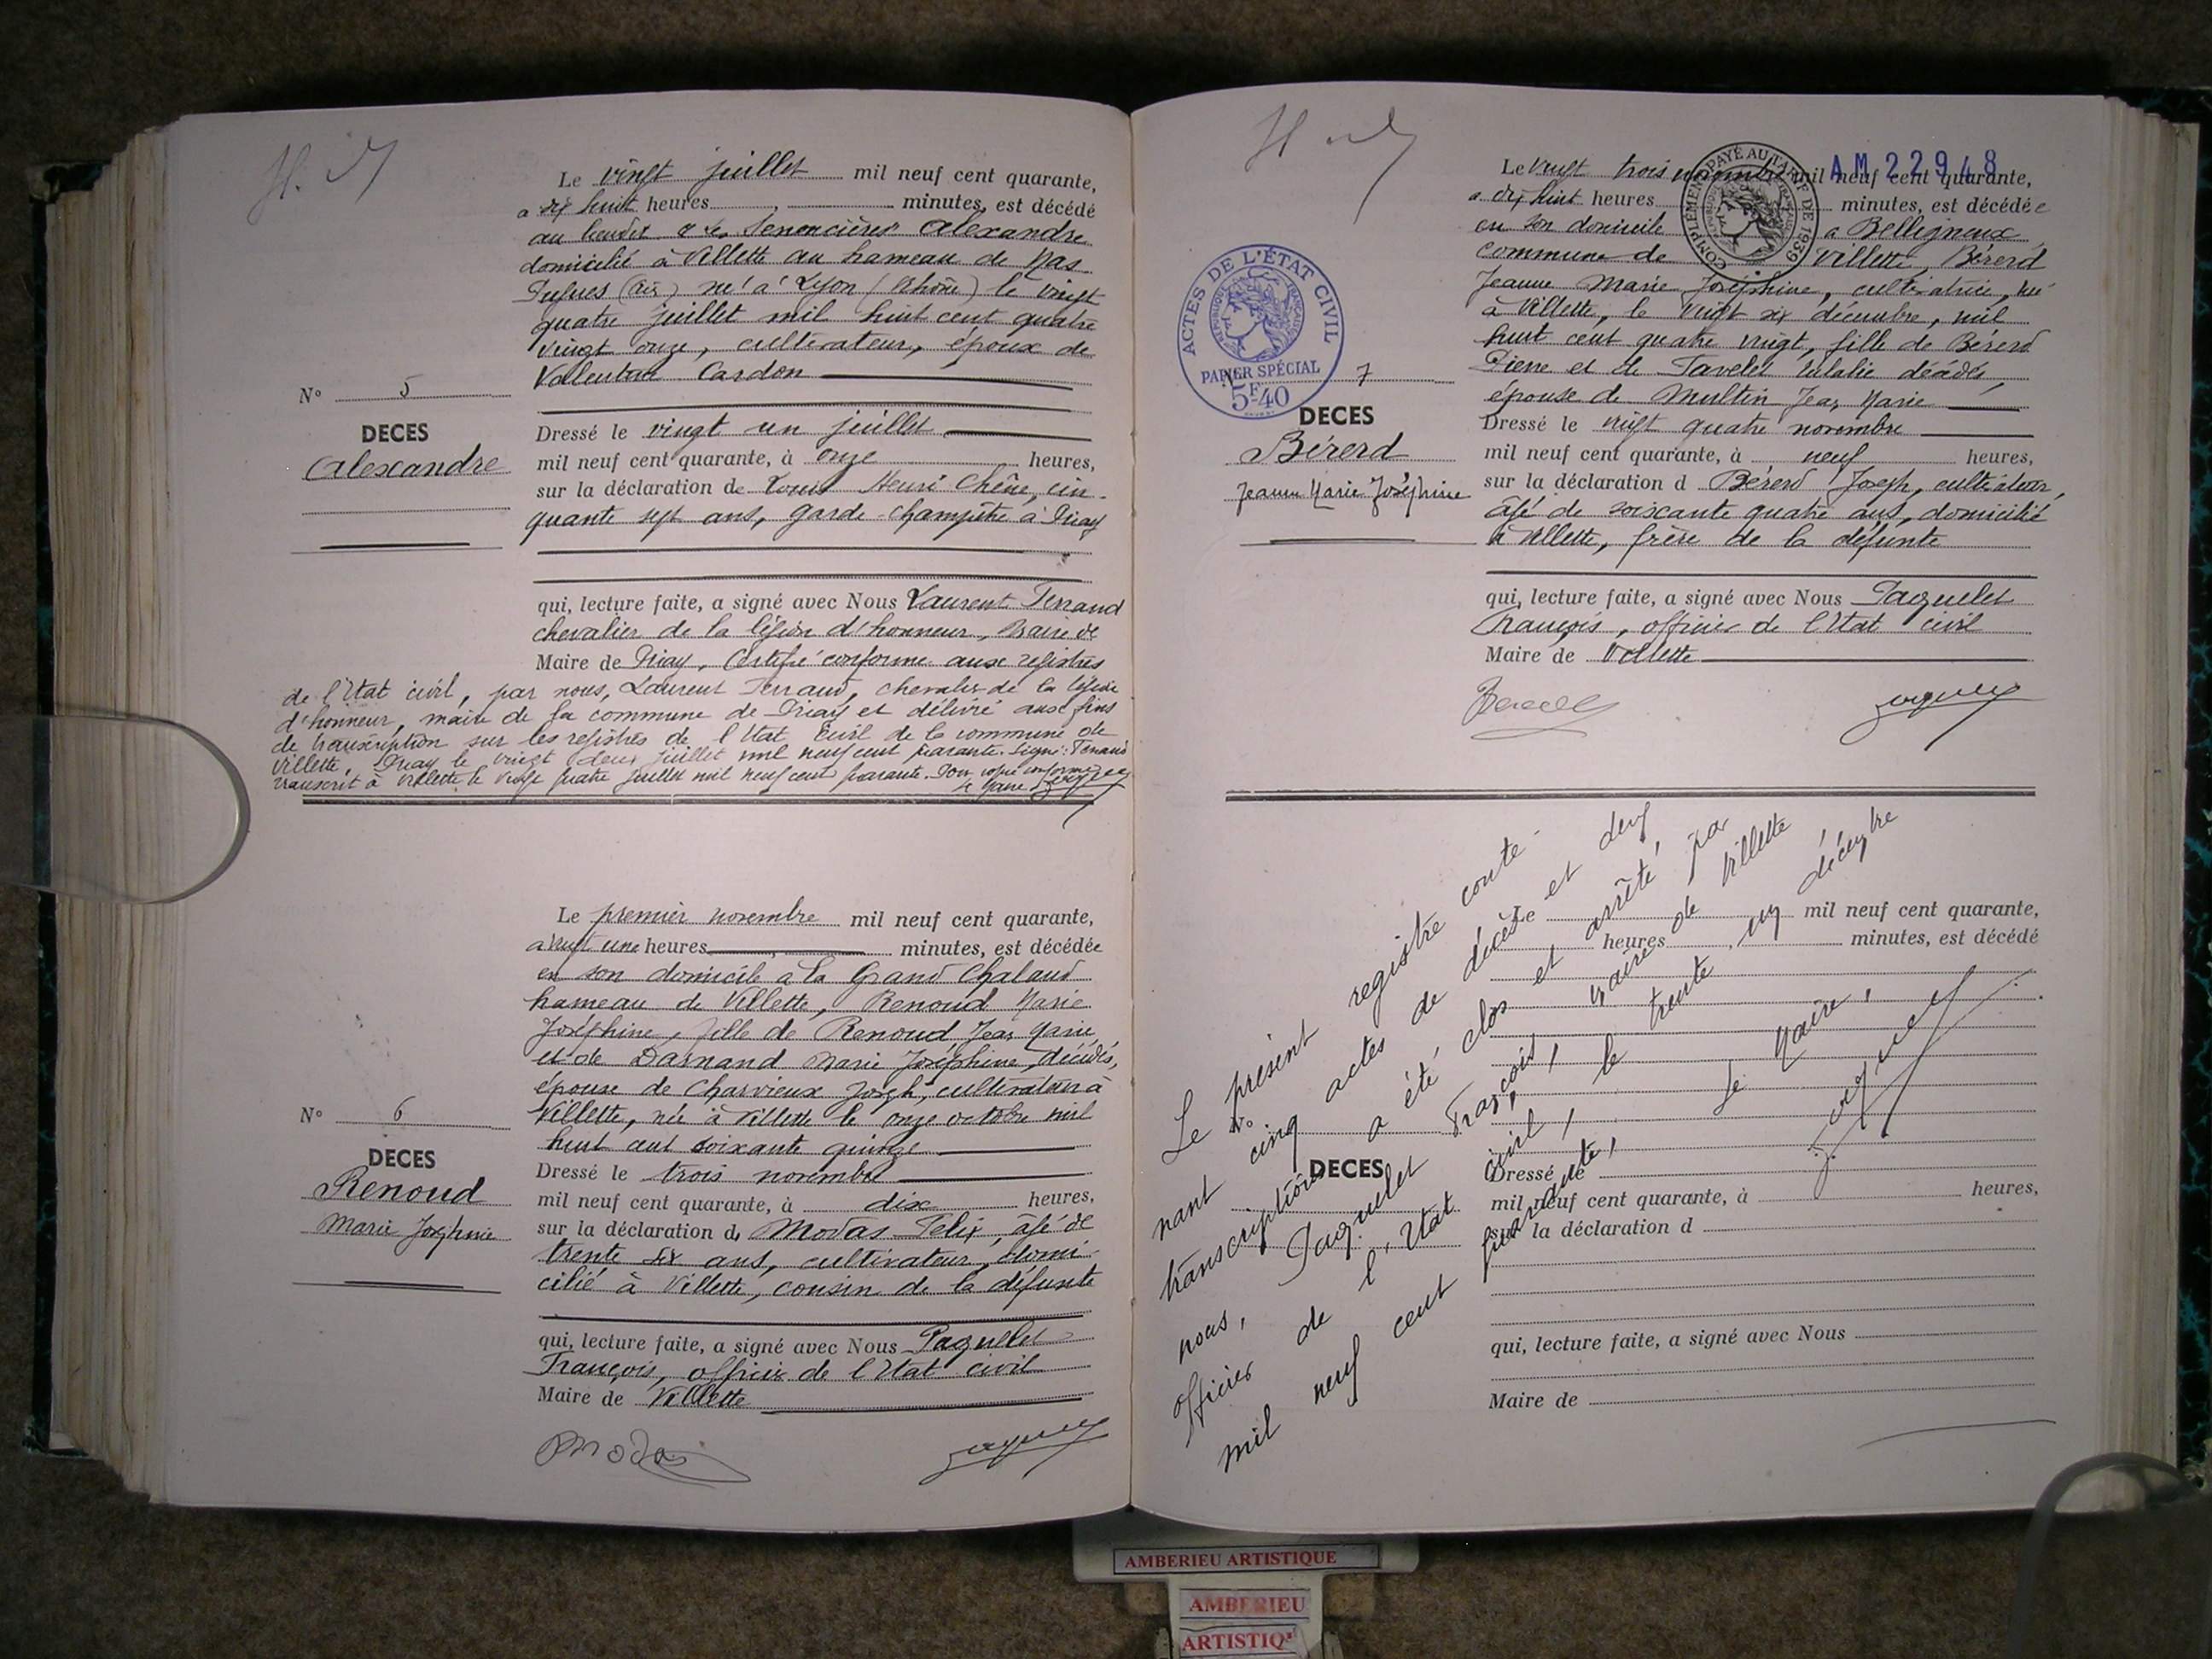 Le vingt juillet mil neuf cent quarante,
a dix huit heures , minutes, est décédé
au lieudit Alexandre
domicilié à Villette au hameau de Mas
né à Lyon (Rhône) le vingt
quatre juillet mil huit cent quatre
vingt onze, cultivateur, époux de
Cardon
N° 5
DECES
Alexandre
Dressé le vingt un juillet
mil neuf cent quarante, à onze heures,
sur la déclaration de Louis Henri Chêne, cin-
quante sept ans, garde-champêtre à Priay
qui, lecture faite, a signé avec Nous Laurent Terrand
chevalier de la légion d'honneur, Maire de
Maire de Priay, Certifié conforme aux registres
de l'Etat civil, par nous, Laurent Terrand, chevalier de la légion
d'honneur, maire de la commune de Priay et délivré aux fins
de transcription sur les registres de l'Etat civil de la commune de
Villette, Priay le vingt deux juillet mil neuf cent quarante. Signé: Terrand
transcrit à Villette le vingt quatre juillet mil neuf cent quarante. Pour copie conforme
le Maire
Le premier novembre mil neuf cent quarante,
a vingt une heures , minutes, est décédée
en son domicile a la Grand Chaland
hameau de Villette, Renoud Marie
Joséphine, fille de Renoud Jean Marie
et de Darnand Marie Joséphine, décédés,
épouse de Charvieux Joseph, cultivateur à
Villette, née à Villette le onze octobre mil
huit cent soixante quinze
N° 6
DECES
Renoud
Marie Joséphine
Dressé le trois novembre
mil neuf cent quarante, à dix heures,
sur la déclaration de Modas Felix, âgé de
trente six ans, cultivateur, domi-
cilié à Villette, cousin de la défunte
qui, lecture faite, a signé avec Nous Paquelet
François, officier de l'Etat civil
Maire de Villette
Modas
AM 22948
COMPLÉMENT PAYÉ AU TARIF DE 1939
Le vingt trois novembre mil neuf cent quarante,
a dix huit heures minutes, est décédée
en son domicile a Belligneux
commune de Villette, Bérerd
Jeanne Marie Joséphine, cultivatrice, née
à Villette, le vingt six décembre, mil
huit cent quatre vingt, fille de Bérerd
Pierre et de Tavelet Eulalie décédés,
épouse de Multin Jean Marie
ACTES DE L'ÉTAT CIVIL
RÉPUBLIQUE FRANÇAISE
PAPIER SPÉCIAL
5F40
7
DECES
Bérerd
Jeanne Marie Joséphine
Dressé le vingt quatre novembre
mil neuf cent quarante, à neuf heures,
sur la déclaration d Bérerd Joseph, cultivateur,
âgé de soixante quatre ans, domicilié
à Villette, frère de la défunte
qui, lecture faite, a signé avec Nous Paquelet
François, officier de l'Etat civil
Maire de Villette
Le présent registre conte-
nant cinq actes de décès et deux
transcriptions a été clos et arrêté par
nous, Paquelet François, maire de Villette
officier de l'Etat civil, le trente un décembre
mil neuf cent quarante,
Le Maire,
Le mil neuf cent quarante,
heures , minutes, est décédé
N°
DECES
Dressé le
mil neuf cent quarante, à heures,
sur la déclaration d
qui, lecture faite, a signé avec Nous
Maire de
AMBERIEU ARTISTIQUE
AMBERIEU
ARTISTIQ